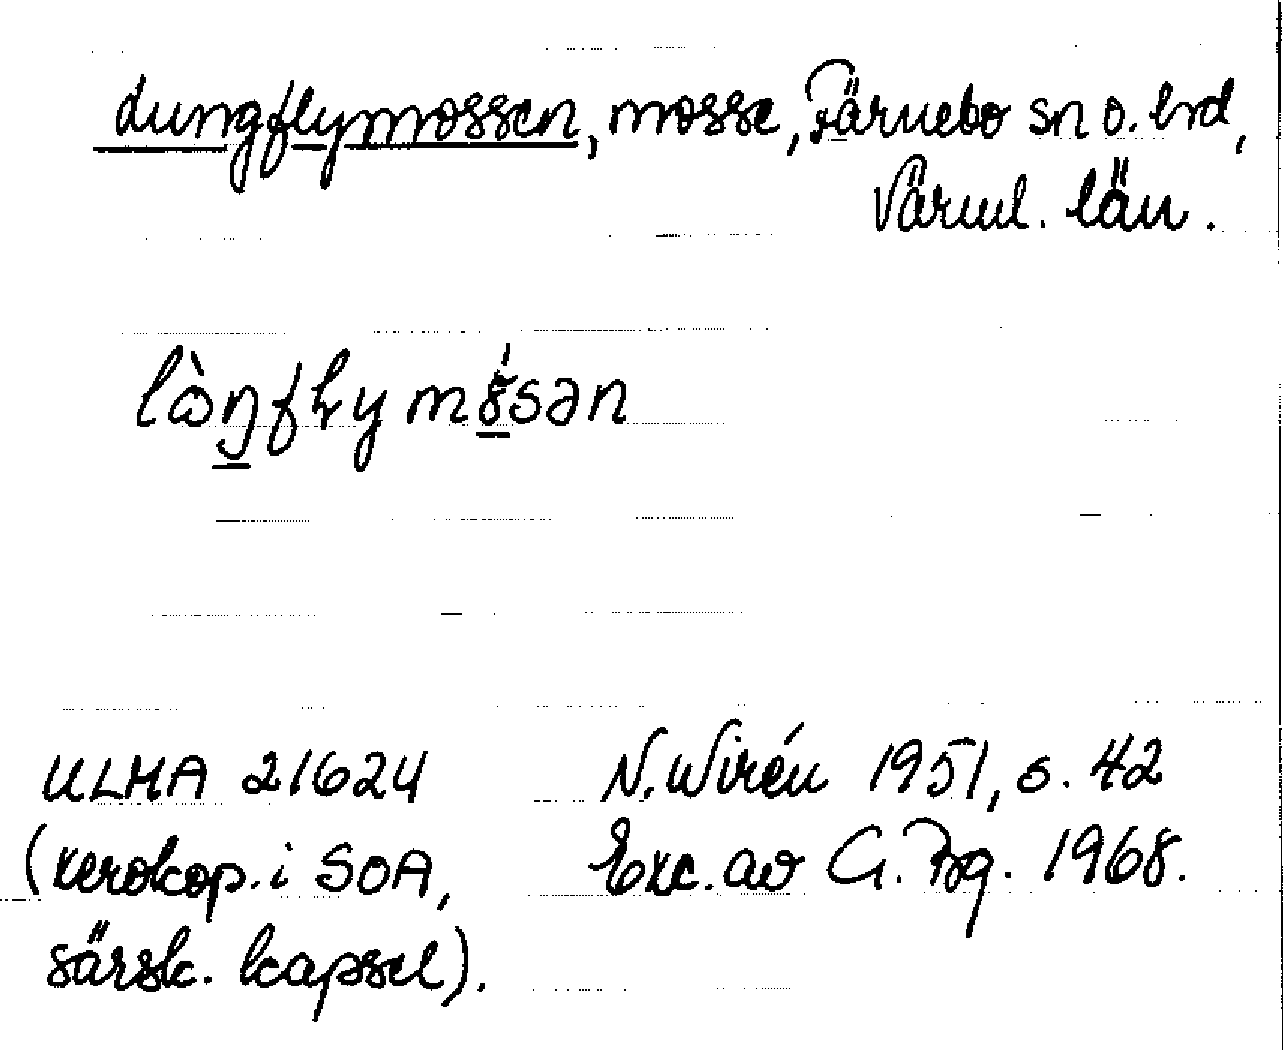 Lungflymossen, mosse, Färnebo sn o. hrd,
Värml. län.
lὼŋflymɤ́sən
ULMA 21624
(xerokop. i SOA,
särsk. kapsel).
N. Wirén 1951, s. 42
Exc. av G. Bg. 1968.